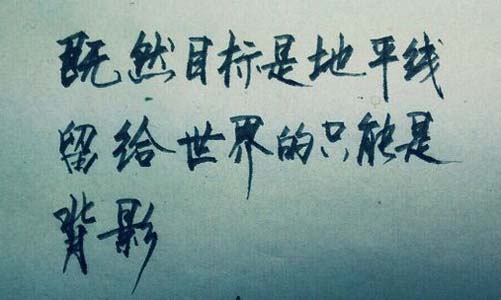 既然目标是地平线
留给世界的只能是
背影